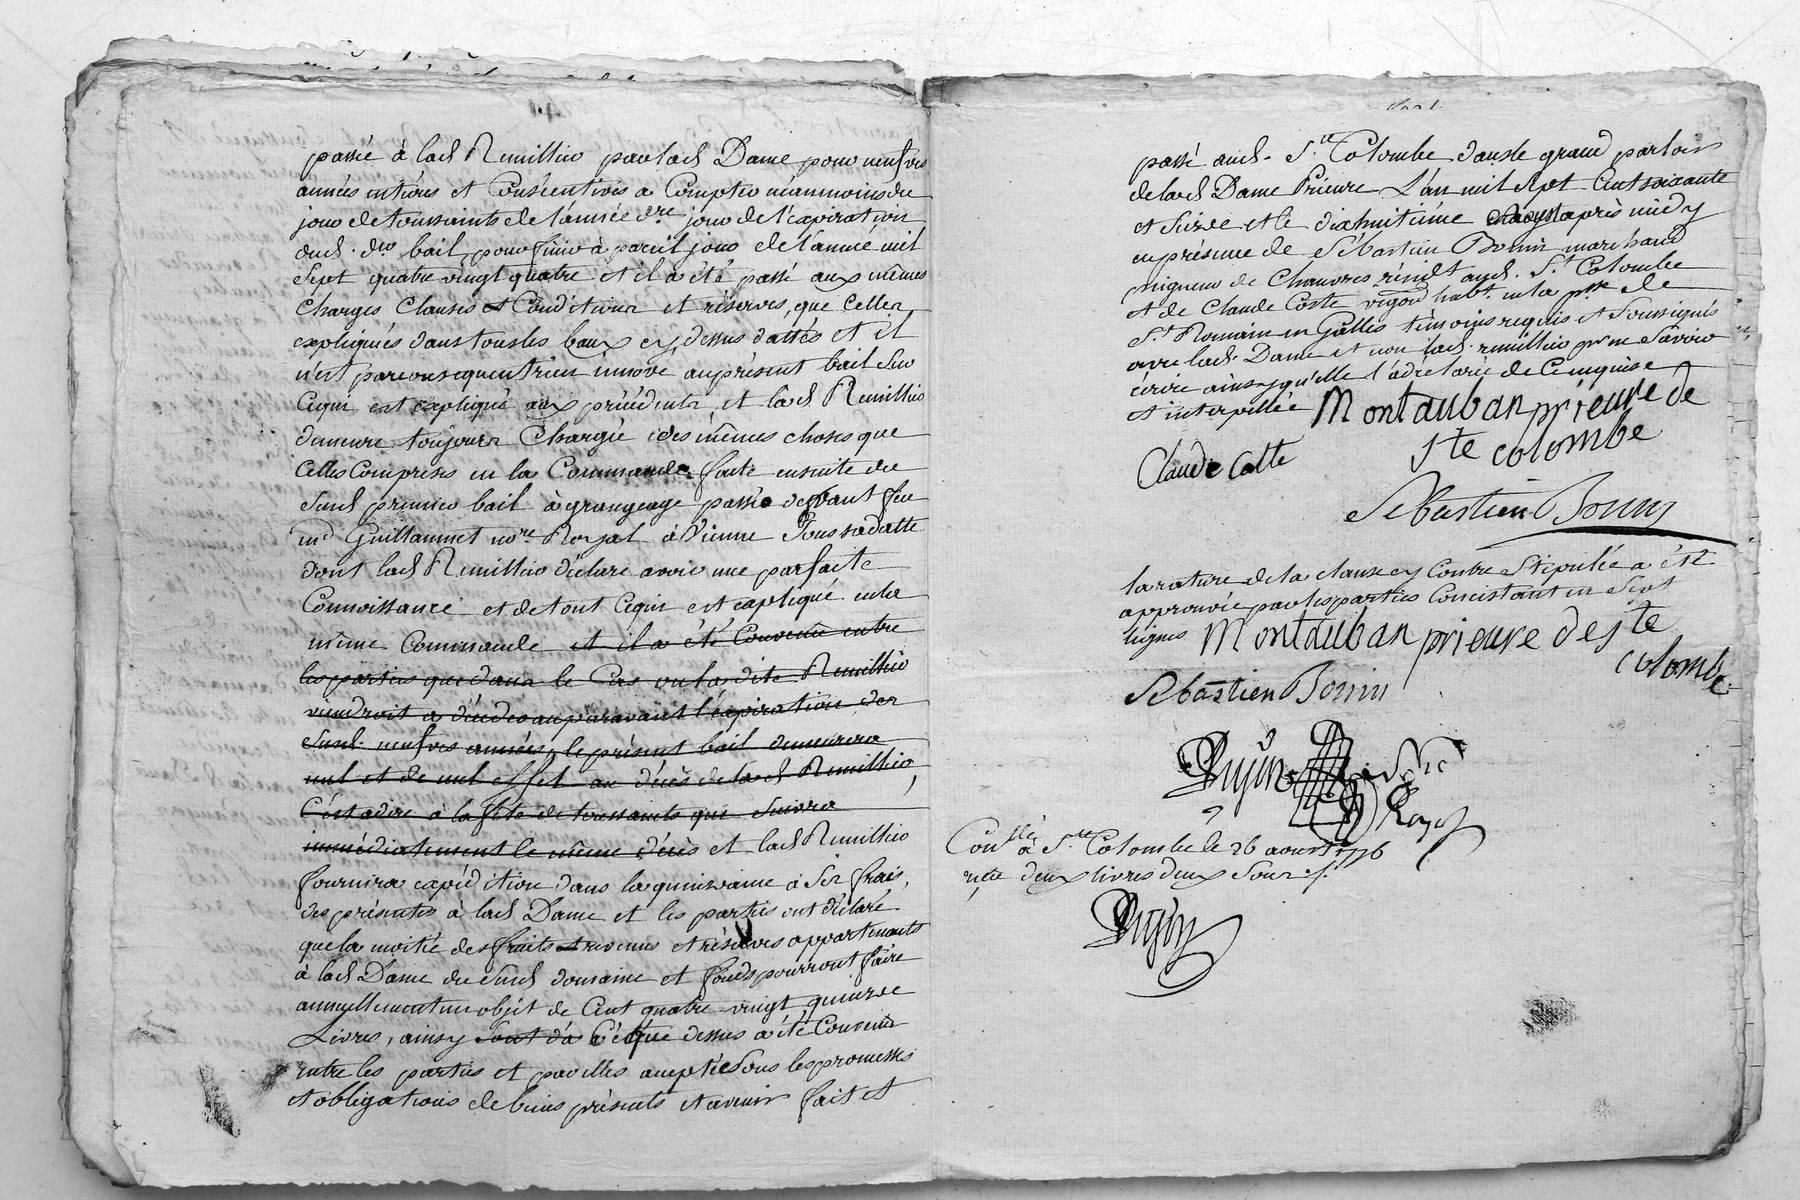 passé à lad Remillieu par lad Dame pour neufves
années entières et Consécutives a Compter néanmoins du
jour de toussaints de l'année dre jour de l'expiration
dud. der bail, pour finir à pareil jour de l'année mil
Sept quatre vingt quatre et il a été passé aux mêmes
Charges Clauses et Conditions et réserves, que Celles
expliqués dans tous les baux cy dessus dattés et il
n'est par consequent rien innové au présent bail Sur
Ce qui est expliqué aux précédents, et lad Remillieu
demeure toujours Chargée des mêmes choses que
Celles Comprises en la Commande faite ensuite du
Susd premier bail à grangeage passé devant feu
me Guillaumet nore Royal à Vienne Sous sa datte
dont lad Remillieu déclare avoir une parfaite
Connoissance et de tout Ce qui est expliqué en la
même Commande et il a été Convenu entre
les parties que dans le Cas ou la dite Remillieu
viendroit a décéder auparavant l'expiration des
Susd. neufves années, le présent bail demeurera
nul et de nul effet au décès de lad Remillieu,
C'est a dire à la fête de toussaints qui Suivra
immédiatement le même décès et lad Remillieu
fournira expédition dans la quinzaine à Ses frais,
des présentes à lad Dame et les parties ont déclaré
que la moitié des fruits et revenus et réserves appartenants
à lad Dame du Susd domaine et fonds pourront faire
annuellement un objet de Cent quatre vingt quinze
Livres, ainsy que dessus a été Convenu
entre les parties et par elles accepté Sous les promesses
et obligations de biens présents et avenir fait et
passé aud. Ste Colombe dans le grand parloir
de lad Dame Prieure L'an mil Sept Cent soixante
et Seize et le dixhuitième aoust après midy
en présence de Sébastien Bonin marchand
peigneur de Chanvres résidt aud. Ste Colombe
et de Claude Coste vigron habt. en la psse de
St. Romain en Galles témoins requis et Soussignés
avec lad. Dame et non lad. remillieu pr ne Savoir
écrire ainsy qu'elle l'a déclaré de Ce enquise
et interpellée Montauban prieure de
ste colombe
Claude Coste
Sebastien Bonin
la rature de la clause cy Contre Stipulée a été
approuvée par les parties Consistant en Sept
lignes Montauban prieure de ste
colombe
Sébastien Bonin
Dujon
Conllé à Ste Colombe le 26 aoust 1776
reçu deux livres deux Sous
Dujon